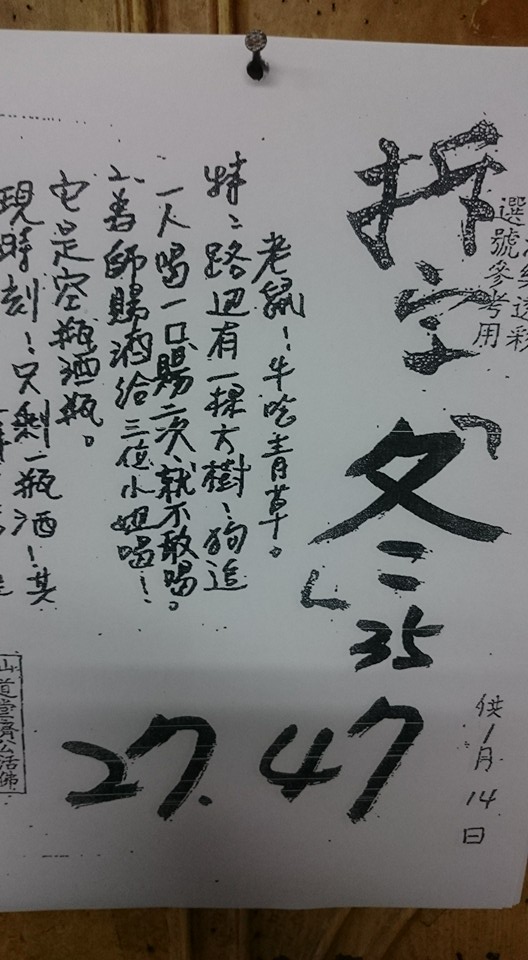 選號參考用
拆字
「冬」
35
47
27.
供1月14日
老鼠！牛吃青草。
特：路边有一棵大樹！狗追
一人喝一口賜二次、就不敢喝。
2、為師賜酒給三位小姐喝！
它是空瓶酒瓶。
現時刻！只剩一瓶酒！其
山道堂濟公活佛